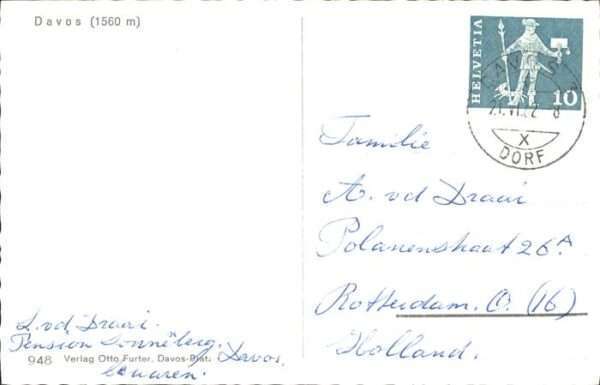 Davos (1560 m)
HELVETIA
10
DAVOS
X
DORF
Familie
A. vd Draai
Polanenstraat 26A
Rotterdam. O. (16)
Holland.
L. vd Draai.
Pension Sonneberg.
Davos.
948 Verlag Otto Furter, Davos-Platz